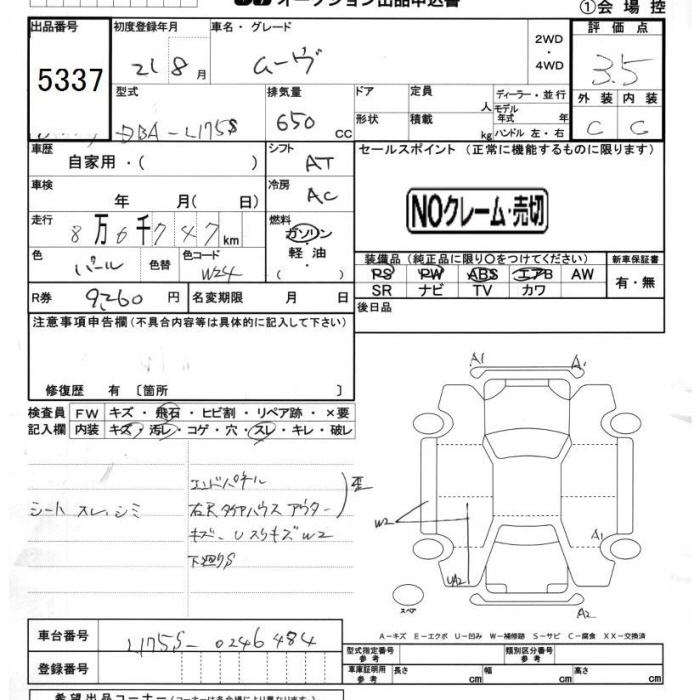 オークション出品申込書
①会場控
出品番号
5337
初度登録年月
21 8月
車名・グレード
ムーヴ
2WD
・
4WD
評価点
3.5
外装 内装
C C
型式
DBA-L175S
排気量
650 CC
ドア
定員
人
形状
積載
kg
ディーラー・並行
モデル
年式 年
ハンドル 左・右
車歴
自家用・( )
シフト
AT
セールスポイント (正常に機能するものに限ります)
NOクレーム・売切
車検
年 月( 日)
冷房
AC
走行
8万6千747km
燃料
ガソリン
軽・油
( )
色
パール
色替
色コード
W24
装備品 (純正品に限り○をつけてください)
PS PW ABS エアB AW
SR ナビ TV カワ
新車保証書
有・無
R券 9,260円
名変期限 月 日
後日品
注意事項申告欄 (不具合内容等は具体的に記入して下さい)
修復歴 有 〔箇所 〕
検査員
記入欄
FW キズ・飛石・ヒビ割・リペア跡・×要
内装 キズ・汚レ・コゲ・穴・スレ・キレ・破レ
シート スレ、シミ
エンドパネル
右Rタイヤハウス アウター
歪
キズ
W2
下廻りS
A1
A1
W2
A1
UA2
A2
スペア
A-キズ E-エクボ U-凹み W-補修跡 S-サビ C-腐食 XX-交換済
車台番号
L175S-0246484
登録番号
型式指定番号
参考
類別区分番号
参考
車庫証明用
参考
長さ cm
幅 cm
高さ cm
希望出品コーナー